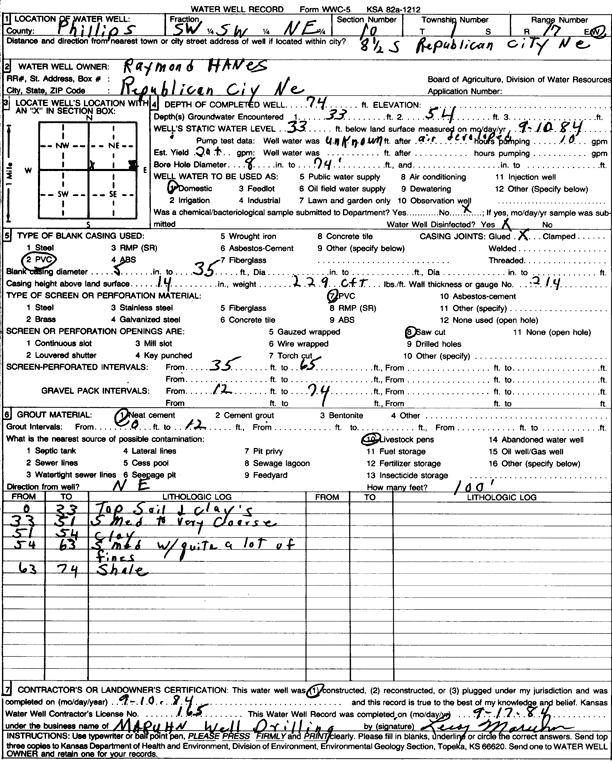 WATER WELL RECORD Form WWC-5 KSA 82a-1212
1 LOCATION OF WATER WELL: Fraction Section Number Township Number Range Number
County: Phillips SW ¼ SW ¼ NE ¼ 10 T 1 S R 17 E/W
Distance and direction from nearest town or city street address of well if located within city? 8 1/2 S Republican City Ne
2 WATER WELL OWNER: Raymond HANES
RR#, St. Address, Box # : Board of Agriculture, Division of Water Resources
City, State, ZIP Code : Republican Ciy Ne Application Number:
3 LOCATE WELL'S LOCATION WITH AN "X" IN SECTION BOX:
N
NW NE
W E
X
SW SE
S
1 Mile
4 DEPTH OF COMPLETED WELL 74 ft. ELEVATION:
Depth(s) Groundwater Encountered 1. 33 ft. 2. 54 ft. 3.
WELL'S STATIC WATER LEVEL 33 ft. below land surface measured on mo/day/yr 9-10-84
Pump test data: Well water was unknown ft. after air developed hours pumping 10 gpm
Est. Yield 20+ gpm: Well water was ft. after hours pumping gpm
Bore Hole Diameter 8 in. to 74' ft., and in. to ft.
WELL WATER TO BE USED AS: 5 Public water supply 8 Air conditioning 11 Injection well
1 Domestic 3 Feedlot 6 Oil field water supply 9 Dewatering 12 Other (Specify below)
2 Irrigation 4 Industrial 7 Lawn and garden only 10 Observation well
Was a chemical/bacteriological sample submitted to Department? Yes No X; If yes, mo/day/yr sample was sub-
mitted Water Well Disinfected? Yes X No
5 TYPE OF BLANK CASING USED: 5 Wrought iron 8 Concrete tile CASING JOINTS: Glued X Clamped
1 Steel 3 RMP (SR) 6 Asbestos-Cement 9 Other (specify below) Welded
2 PVC 4 ABS 7 Fiberglass Threaded.
Blank casing diameter 5 in. to 35 ft., Dia in. to ft., Dia in. to ft.
Casing height above land surface 14 in., weight 2.29 CfT lbs./ft. Wall thickness or gauge No. .214
TYPE OF SCREEN OR PERFORATION MATERIAL: 7 PVC 10 Asbestos-cement
1 Steel 3 Stainless steel 5 Fiberglass 8 RMP (SR) 11 Other (specify)
2 Brass 4 Galvanized steel 6 Concrete tile 9 ABS 12 None used (open hole)
SCREEN OR PERFORATION OPENINGS ARE: 5 Gauzed wrapped 8 Saw cut 11 None (open hole)
1 Continuous slot 3 Mill slot 6 Wire wrapped 9 Drilled holes
2 Louvered shutter 4 Key punched 7 Torch cut 10 Other (specify)
SCREEN-PERFORATED INTERVALS: From 35 ft. to 65 ft., From ft. to ft.
From ft. to ft., From ft. to ft.
GRAVEL PACK INTERVALS: From 12 ft. to 74 ft., From ft. to ft.
From ft. to ft., From ft. to ft.
6 GROUT MATERIAL: 1 Neat cement 2 Cement grout 3 Bentonite 4 Other
Grout Intervals: From 0 ft. to 12 ft., From ft. to ft., From ft. to ft.
What is the nearest source of possible contamination: 10 Livestock pens 14 Abandoned water well
1 Septic tank 4 Lateral lines 7 Pit privy 11 Fuel storage 15 Oil well/Gas well
2 Sewer lines 5 Cess pool 8 Sewage lagoon 12 Fertilizer storage 16 Other (specify below)
3 Watertight sewer lines 6 Seepage pit 9 Feedyard 13 Insecticide storage
Direction from well? NE How many feet? 100'
FROM TO LITHOLOGIC LOG FROM TO LITHOLOGIC LOG
0 33 Top Soil & clay's
33 51 S med to very coarse
51 54 clay
54 63 S med w/ quite a lot of
fines
63 74 Shale
7 CONTRACTOR'S OR LANDOWNER'S CERTIFICATION: This water well was (1) constructed, (2) reconstructed, or (3) plugged under my jurisdiction and was
completed on (mo/day/year) 9-10-84 and this record is true to the best of my knowledge and belief. Kansas
Water Well Contractor's License No. 165 This Water Well Record was completed on (mo/day/yr) 9-17-84
under the business name of MARUHN Well Drilling by (signature)
INSTRUCTIONS: Use typewriter or ball point pen, PLEASE PRESS FIRMLY and PRINT clearly. Please fill in blanks, underline or circle the correct answers. Send top
three copies to Kansas Department of Health and Environment, Division of Environment, Environmental Geology Section, Topeka, KS 66620. Send one to WATER WELL
OWNER and retain one for your records.